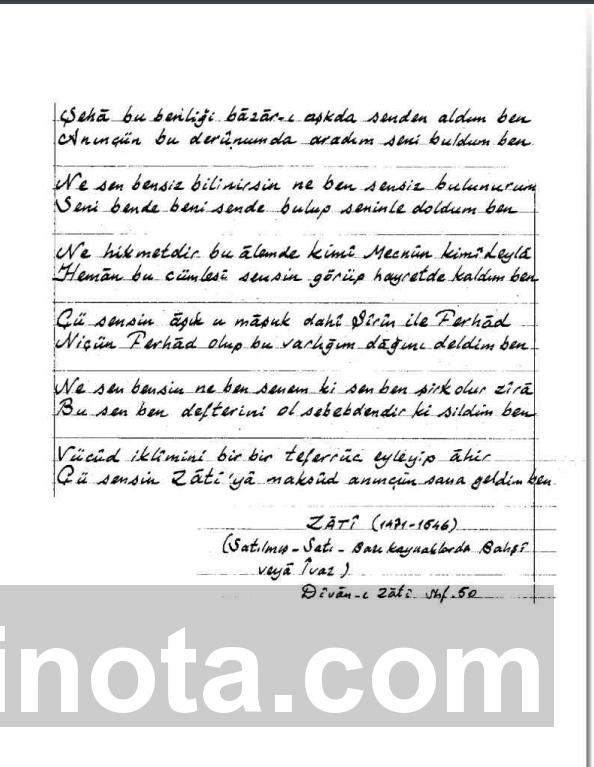 Şehâ bu benliği bâzâr-ı aşkda senden aldım ben
Anınçün bu derûnumda aradım seni buldum ben
Ne sen bensiz bilinirsin ne ben sensiz bulunurum
Seni bende beni sende bulup seninle doldum ben
Ne hikmetdir bu âlemde kimî Mecnûn kimî Leylâ
Hemân bu cümlesi sensin görüp hayretde kaldım ben
Çü sensin âşık u mâşuk dahî Şîrîn ile Ferhâd
Niçün Ferhâd olup bu varlığım dâğını deldim ben
Ne sen bensin ne ben senem ki sen ben şirk olur zîrâ
Bu sen ben defterini ol sebebdendir ki sildim ben
Vücûd iklîmini bir bir teferrüc eyleyip âhir
Çü sensin Zâtî'yâ maksûd anınçün sana geldim ben
ZÂTÎ (1471-1546)
(Satılmış - Satı - Bazı kaynaklarda Bahşî
veyâ İvaz)
Dîvân-ı Zâti Shf. 50
inota.com